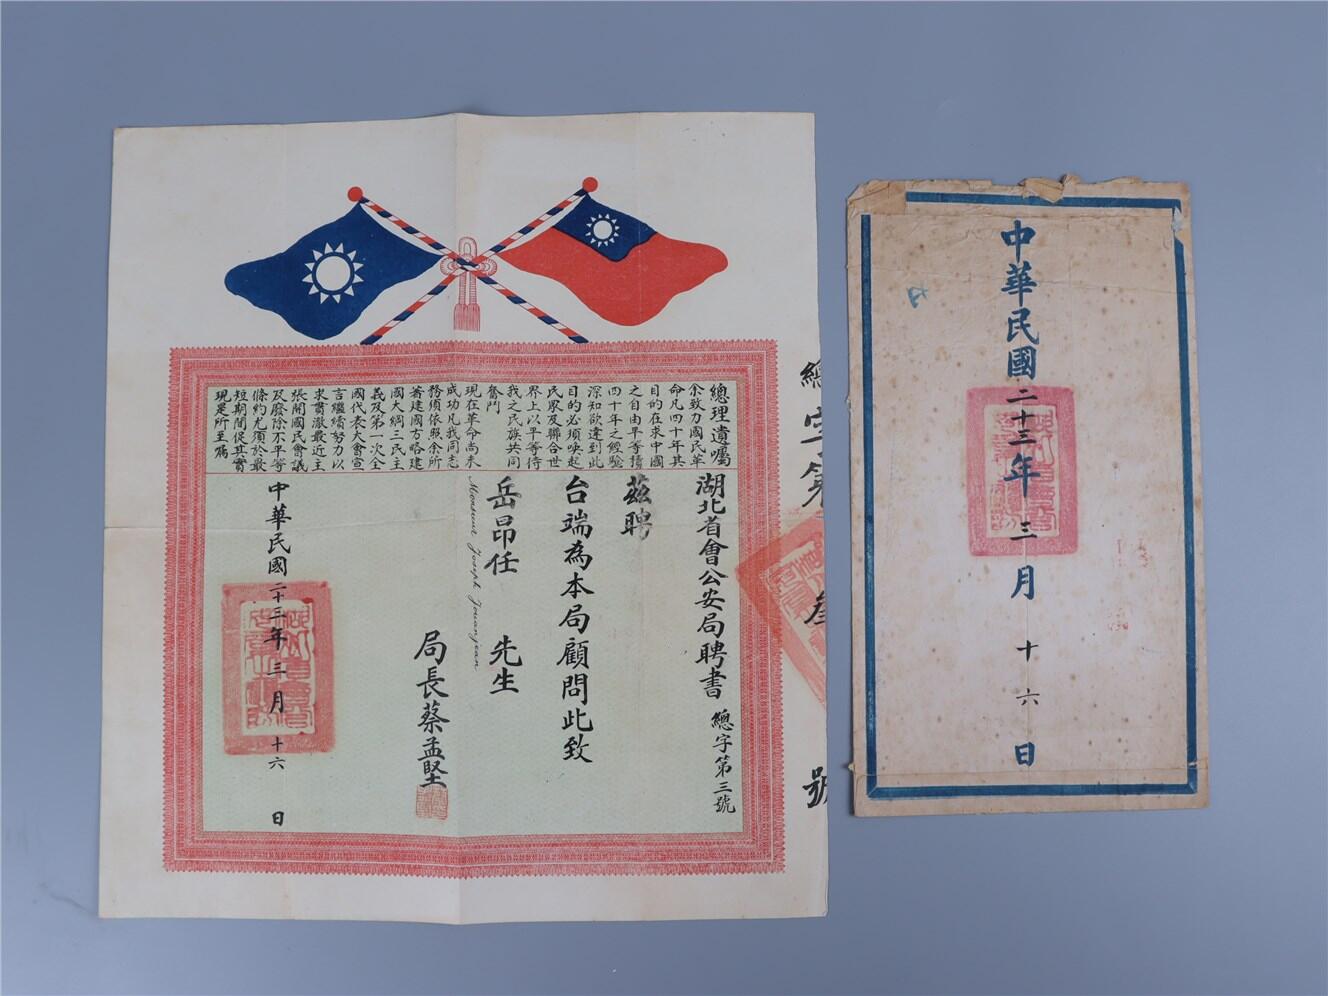 總理遺囑
余致力國民革
命凡四十年其
目的在求中國
之自由平等積
四十年之經驗
深知欲達到此
目的必須喚起
民眾及聯合世
界上以平等待
我之民族共同
奮鬥
現在革命尚未
成功凡我同志
務須依照余所
著建國方略建
國大綱三民主
義及第一次全
國代表大會宣
言繼續努力以
求貫澈最近主
張開國民會議
及廢除不平等
條約尤須於最
短期間促其實
現是所至囑
湖北省會公安局聘書 總字第三號
茲聘
台端為本局顧問此致
岳昂任 先生
Monsieur Joseph Jouanjean
局長蔡孟堅
中華民國二十三年三月十六日
總字第叁號
中華民國二十三年三月十六日